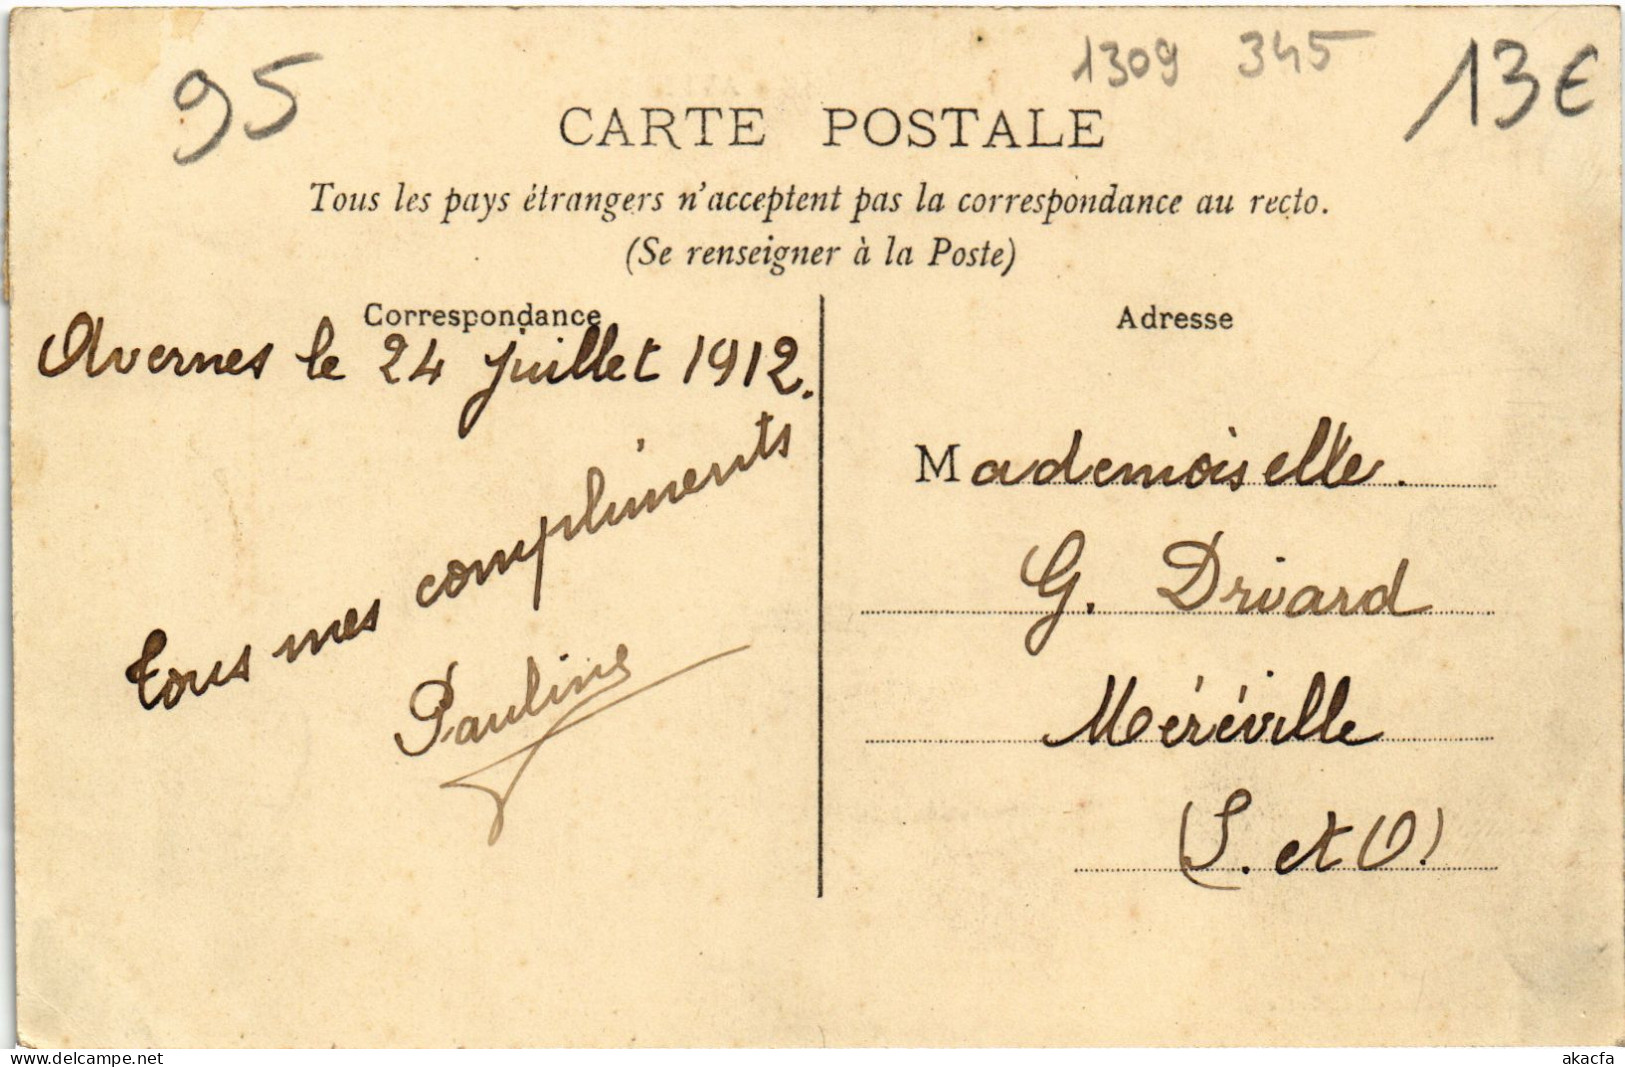 95
1309 345
13€
CARTE POSTALE
Tous les pays étrangers n'acceptent pas la correspondance au recto.
(Se renseigner à la Poste)
Correspondance
Avernes le 24 juillet 1912.
Tous mes compliments
Pauline
Adresse
Mademoiselle.
G. Drivard
Méréville
(S. et O)
www.delcampe.net
akacfa